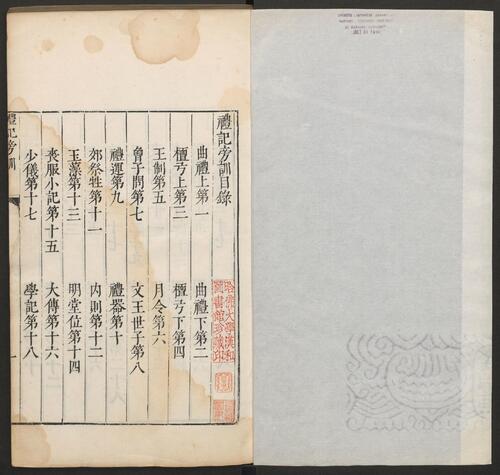 禮記旁訓目錄
曲禮上第一　曲禮下第二
檀弓上第三　檀弓下第四
王制第五　月令第六
曾子問第七　文王世子第八
禮運第九　禮器第十
郊祭牲第十一　內則第十二
玉藻第十三　明堂位第十四
喪服小記第十五　大傳第十六
少儀第十七　學記第十八
禮記旁訓
一
哈佛大學漢和
圖書館珍藏印